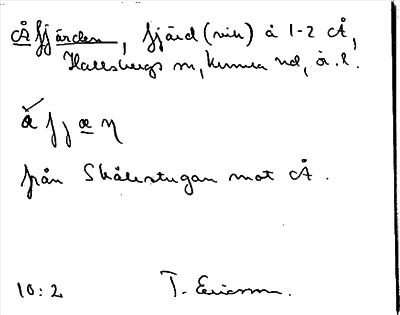 Åfjärden, fjärd (vik) å 1-2 Å,
Hallsbergs sn, Kumla hd, Ö. l.
å f j æ η
från Skålerstugan mot Å.
10:2 T. Ericsson.